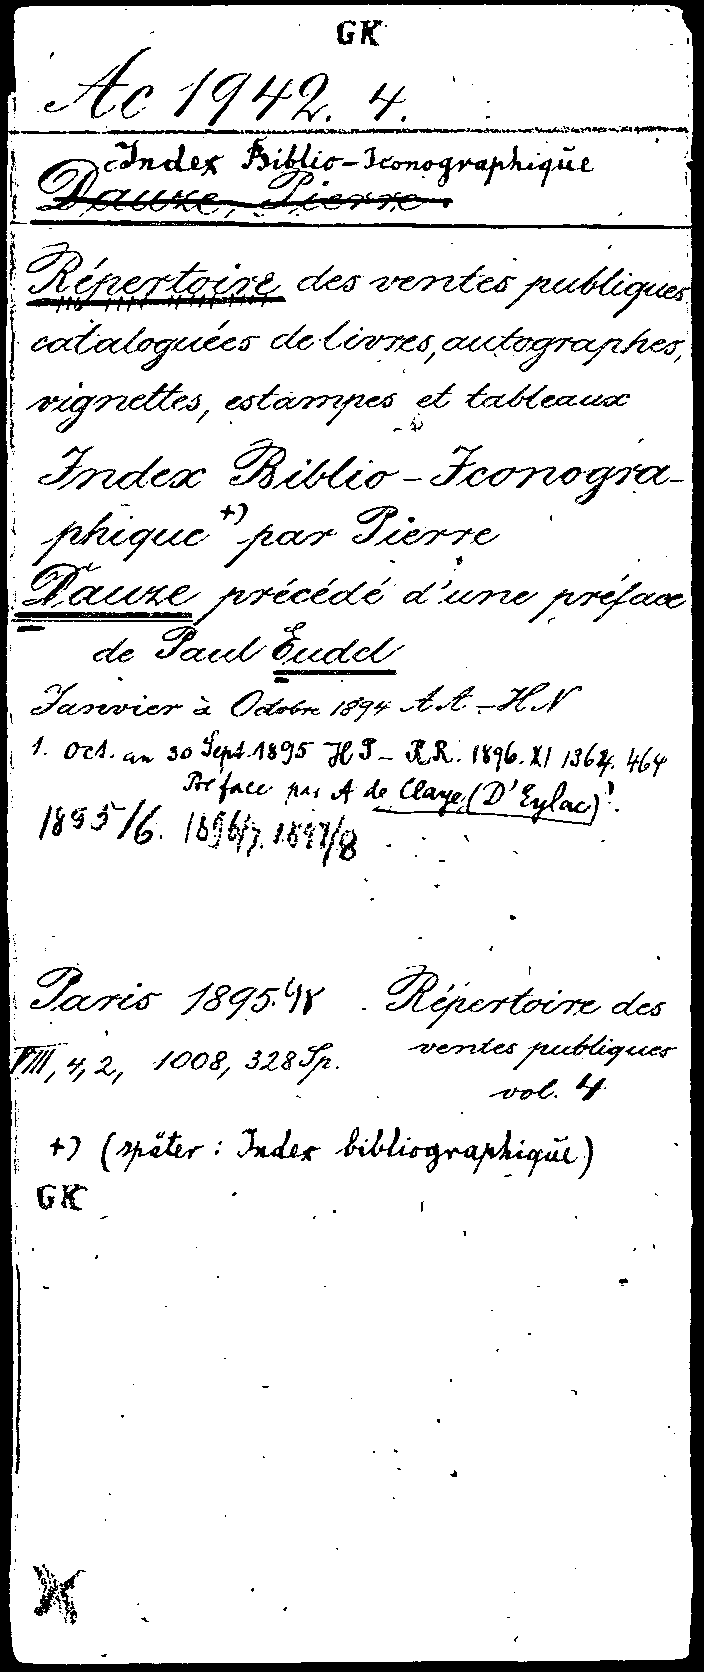 GK
Ac 1942. 4.
Index Biblio-Iconographique
Dauze, Pierre
Répertoire des ventes publiques
cataloguées de livres, autographes,
vignettes, estampes et tableaux
Index Biblio-Iconogra-
phique +) par Pierre
Dauze précédé d'une préface
de Paul Eudel
Janvier à Octobre 1894 AA-HN
1. Oct. au 30 Sept. 1895 HP-RR. 1896. XI 464
Préface par A de Claye (D'Eylac)
1895/6. 1896/7. 1897/8
Paris 1895. Répertoire des
VIII, 4, 2, 1008, 328 Sp. ventes publiques
vol. 4
+) (später: Index bibliographique)
GK